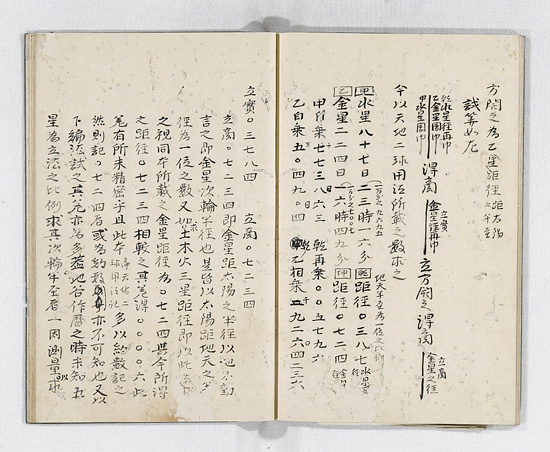 方開之為乙星距径
試筭如左
乾水星径再巾
乙金星周巾
甲水星周巾
得商
立實
金星径再巾
立方開之得商
立商
金星之径
今以天地二球用法所載之數求之
甲水星八十七日二三時一六分 乾距径〇三八七 水星之径
乙金星二二四日一六時四九分 坤距径〇七二四 金星径
甲自乗七七三八六三 乾再乗〇〇五七九六
乙自乗五〇四九〇四 甲乙相乗
立實〇三七八四 立商〇七二三四
立商〇七二三四即金星距太陽之半径以地不動
言之即金星次輪半径也是皆以太陽距地天之半
径為一位之數又如土木火三星距径即以此立法
之視同本所載之金星距径為〇七二四與今所得
之距径〇七二三四相較之其差得〇〇〇〇六此
差有所未精密乎且此本 天地二球用法記 多以約數記之
然則記〇七二四者或為約數亦不可知也又以
下編法試之其差亦為多蓋地谷作暦之時未知五
星為立法之比例求其次輪半径者一因測量求